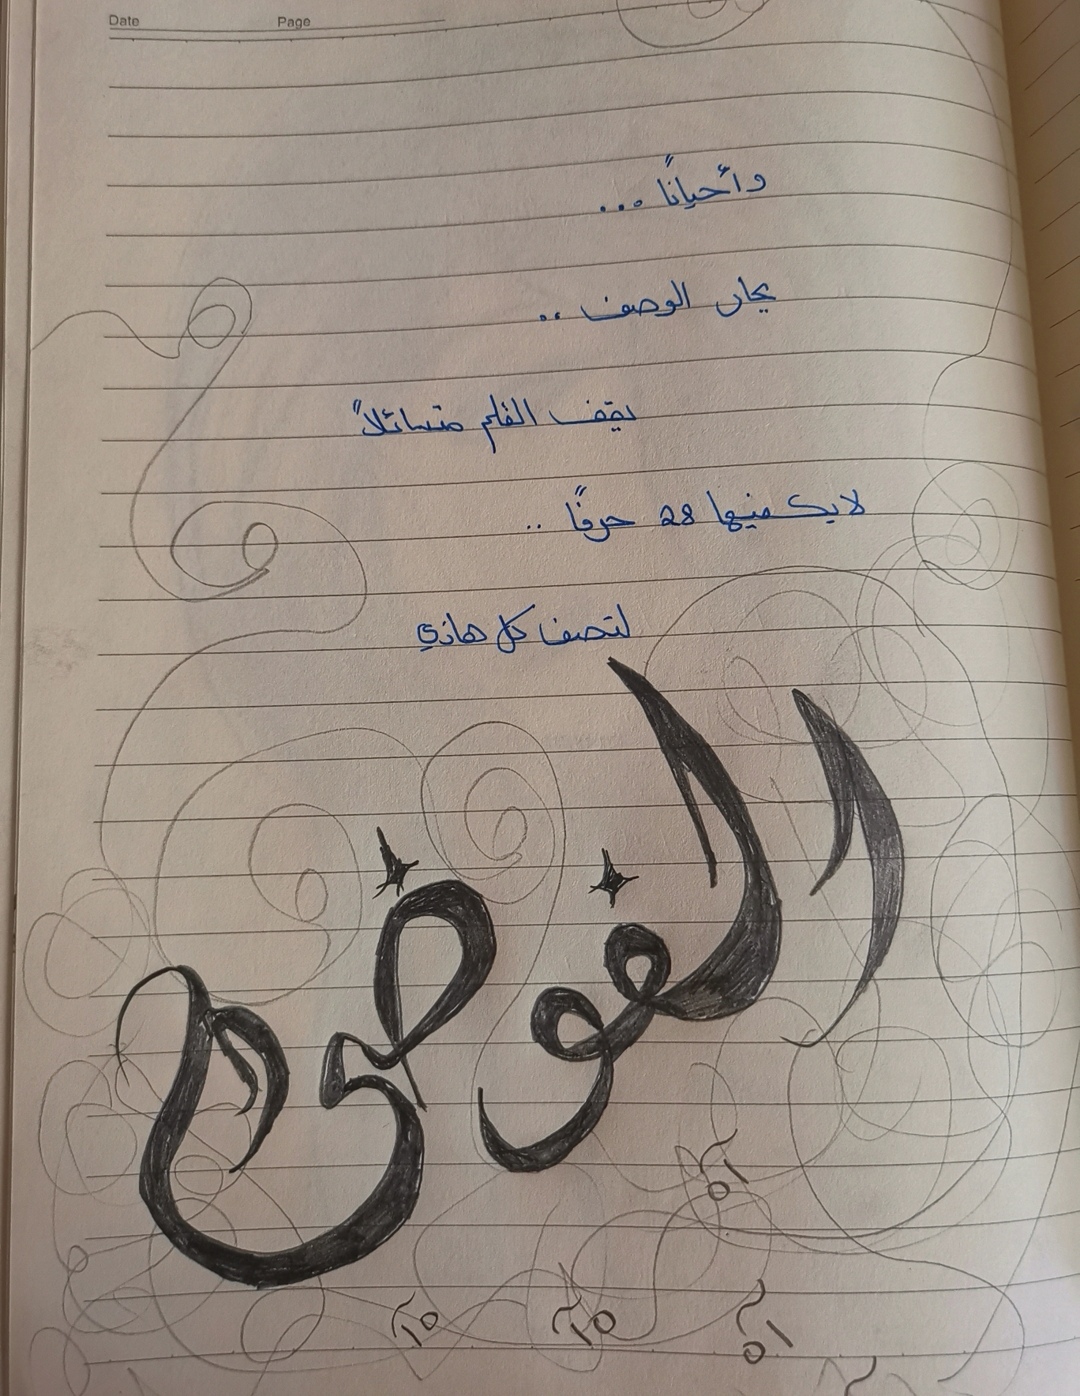 Date Page
وأحيانًا ...
يحار الوصف ..
يقف القلم متسائلاً
لا يكفيها 28 حرفًا ..
لتصف كل هاذي
الفوضى
آه
آه
آه
آه